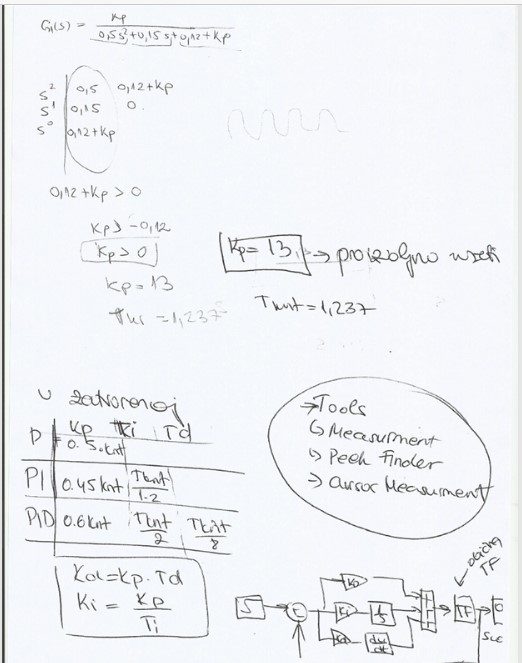 G₁(s) = Kp / 0,5s²+0,15s+0,12+Kp
s² | 0,5 0,12+Kp
s¹ | 0,15 0.
s⁰ | 0,12+Kp
0,12+Kp > 0
Kp > -0,12
Kp > 0
Kp = 13
Tkr = 1,237
Kp = 13, → proizvoljno uzeti
Tkrit = 1,237
u zatvorenoj
Kp Ti Td
P = 0.5·Krit
PI 0.45Krit Tkrit/1.2
PID 0.6Krit Tkrit/2 Tkrit/8
Kd = Kp·Td
Ki = Kp/Ti
→ Tools
↳ Measurment
↳ Peek Finder
→ Cursor Measurment
TF
S
Σ
Kp
Ki 1/s
Kd du/dt
+
+
+
TF